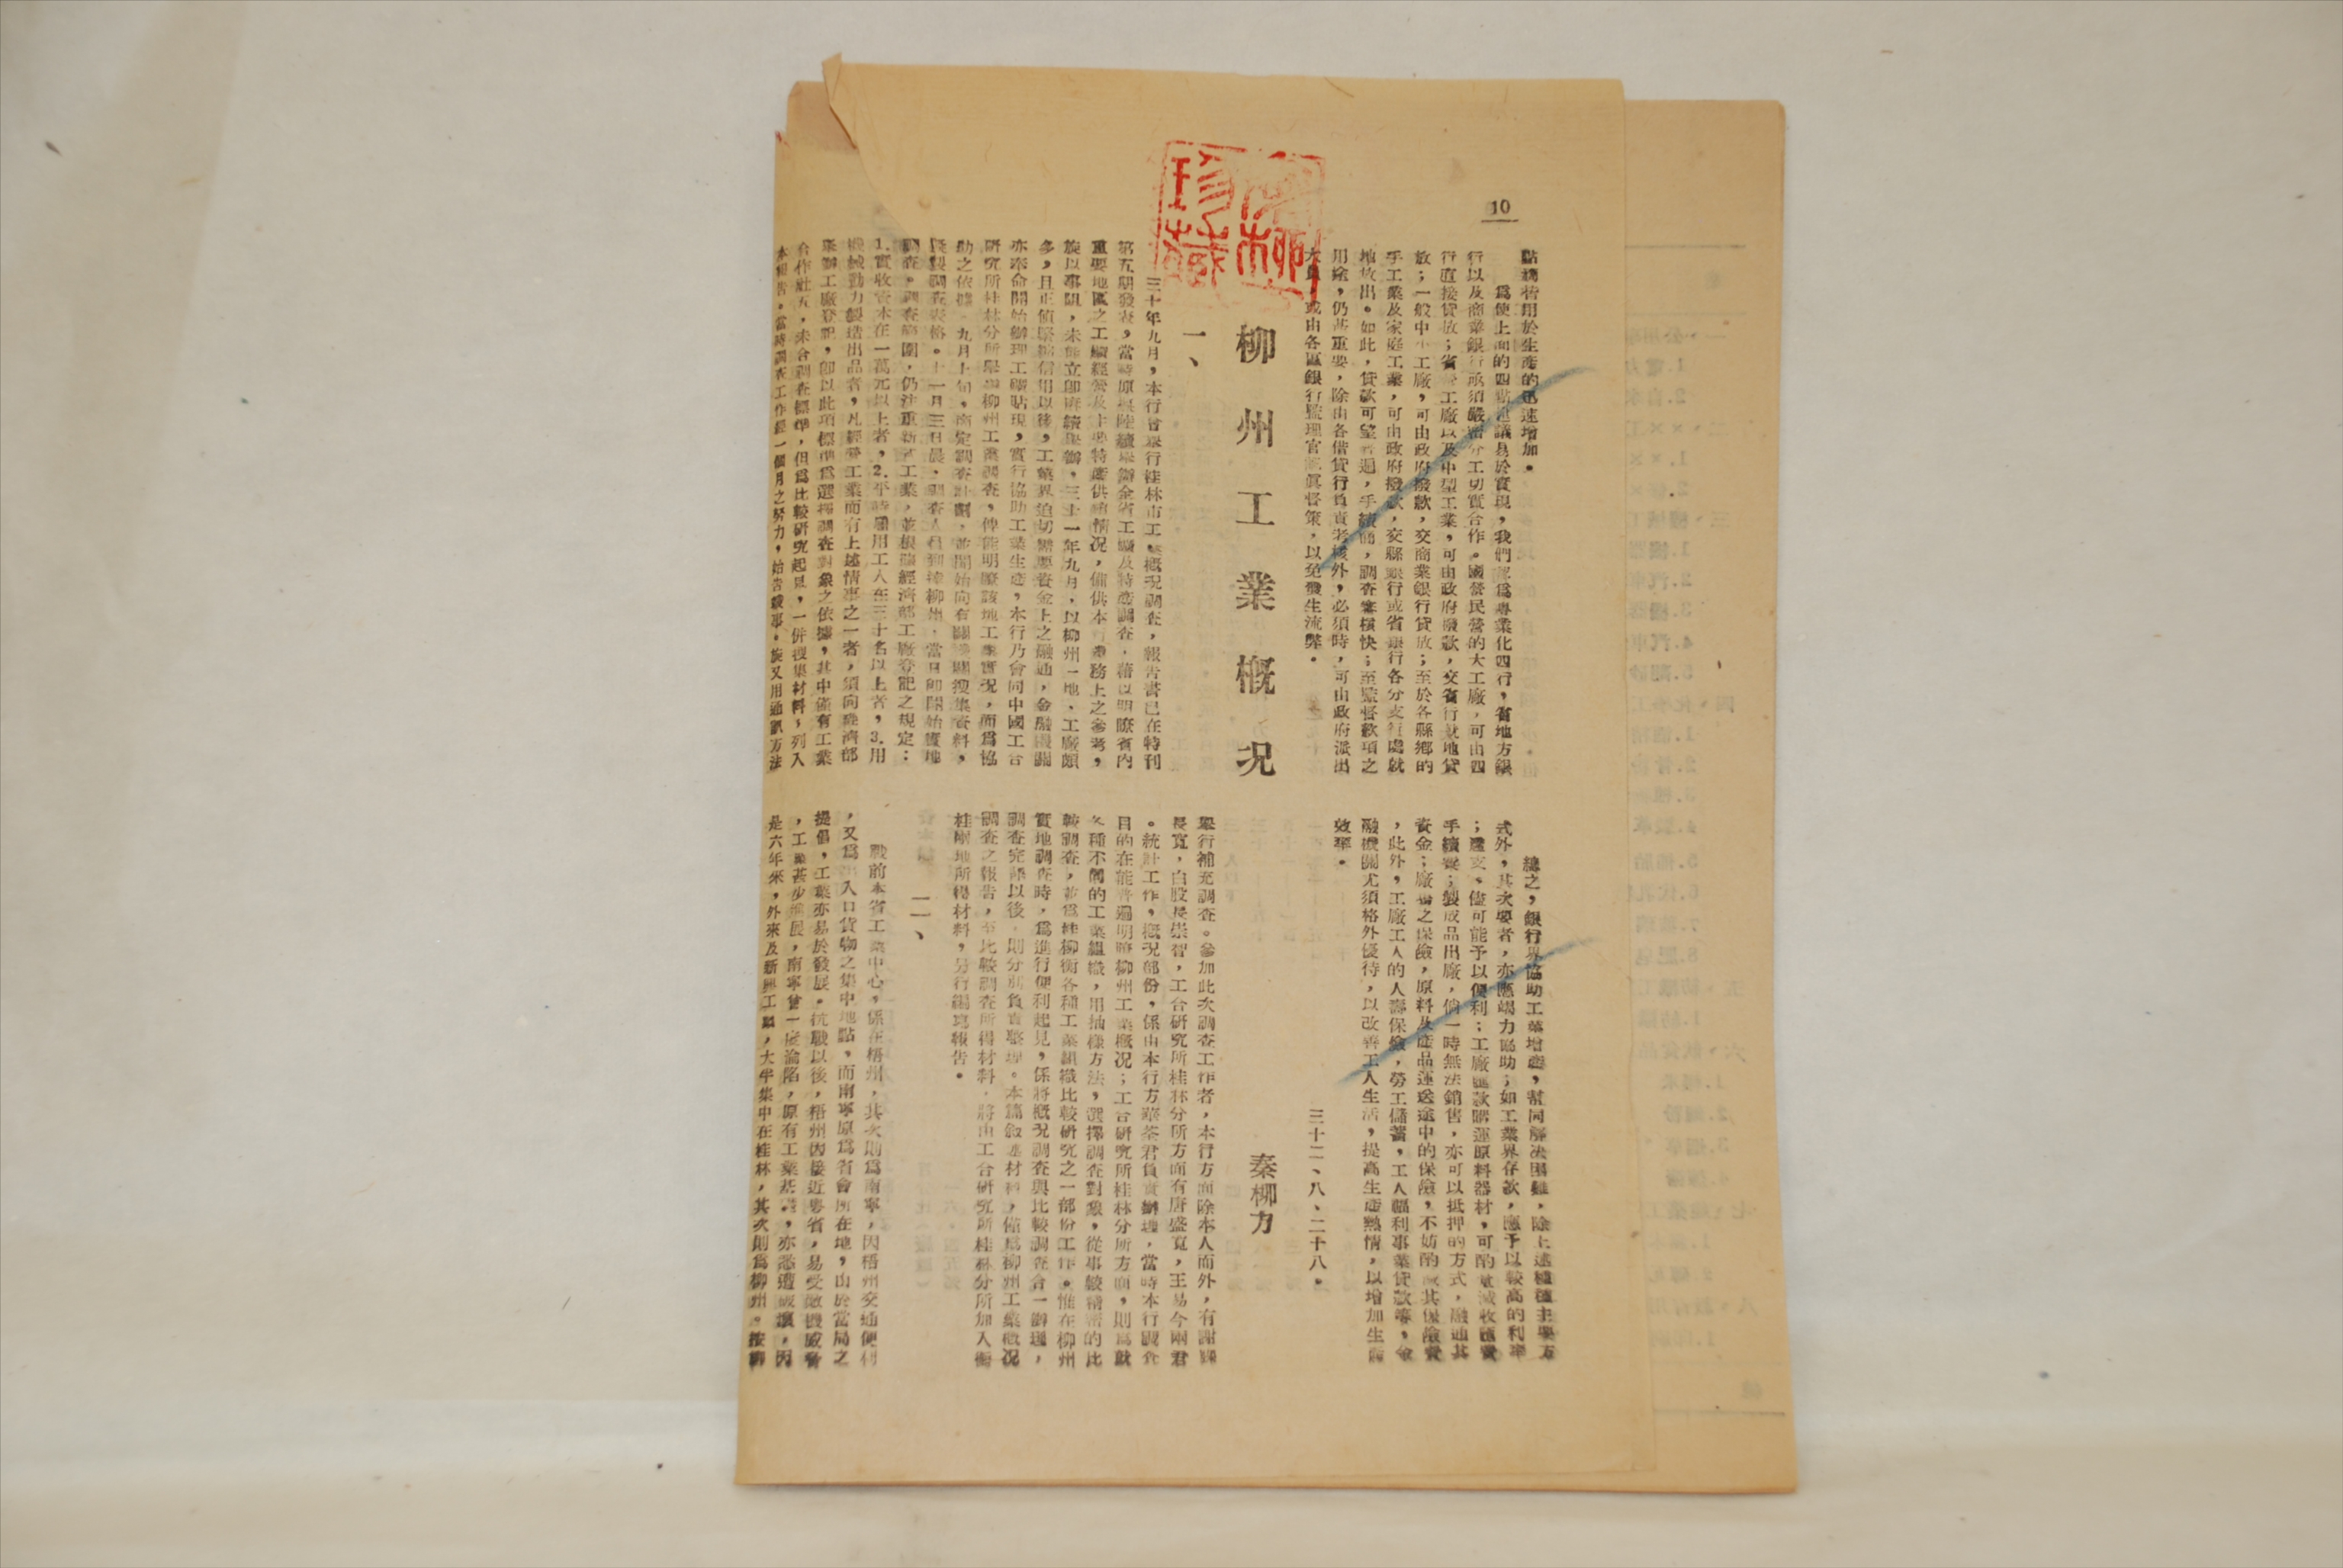 10
點機構用於生產的迅速增加。
爲使上面的四點建議易於實現,我們認爲專業化四行,省地方銀
行以及商業銀行亟須嚴密分工切實合作。國營民營的大工廠,可由四
行直接貸放;省營工廠以及中型工業,可由政府撥款,交省行就地貸
放;一般中小工廠,可由政府撥款,交商業銀行貸放;至於各縣鄉的
手工業及家庭工業,可由政府撥款,交縣銀行或省銀行各分支行處就
地放出。如此,貸款可望普遍,手續簡,調查審核快;至監督款項之
用途,仍甚重要,除由各借貸行負責考核外,必須時,可由政府派出
大員,或由各區銀行監理官認眞督策,以免發生流弊。
總之,銀行界協助工業增產,幫同解決困難,除上述種種主要方
式外,其次要者,亦應竭力協助;如工業界存款,應予以較高的利率
;透支,儘可能予以便利;工廠匯款購運原料器材,可酌量減收匯費
手續費;製成品出廠,倘一時無法銷售,亦可以抵押的方式,融通其
資金;廠場之保險,原料及產品運送途中的保險,不妨酌減其保險費
,此外,工廠工人的人壽保險,勞工儲蓄,工人福利事業貸款等,金
融機關尤須格外優待,以改善工人生活,提高生產熱情,以增加生產
效率。
三十二、八、二十八。
柳州工業概況
秦柳方
一、
三十年九月,本行曾舉行桂林市工業概況調查,報告書已在特刊
第五期發表,當時原擬陸續舉辦全省工礦及特產調查,藉以明瞭省內
重要地區之工礦經營及主要特產供銷情況,備供本行業務上之參考,
旋以事阻,未能立即賡續舉辦。三十一年九月,以柳州一地,工廠頗
多,且正值緊縮信用以後,工業界迫切需要資金上之融通,金融機關
亦奉命開始辦理工礦貼現,實行協助工業生產,本行乃會同中國工合
研究所桂林分所舉辦柳州工業調查,俾能明瞭該地工業實況,而爲協
助之依據。九月上旬,商定調查計劃,並開始向有關機關搜集資料,
擬製調查表格。十一月三日晨,調查人員到達柳州,當日即開始實地
調查。調查範圍,仍注重新式工業,並根據經濟部工廠登記之規定:
1.實收資本在一萬元以上者,2.平時雇用工人在三十名以上者,3.用
機械動力製造出品者,凡經營工業而有上述情事之一者,須向經濟部
舉辦工廠登記,即以此項標準爲選擇調查對象之依據,其中僅有工業
合作社五,未合調查標準,但爲比較研究起見,一併搜集材料,列入
本報告。當時調查工作經一個月之努力,始告竣事。旋又用通訊方法
舉行補充調查。參加此次調查工作者,本行方面除本人而外,有謝課
長寬,白股長崇智,工合研究所桂林分所方面有唐盛寬,王易今兩君
。統計工作,概況部份,係由本行方翠荼君負責辦理,當時本行調查
目的在能普遍明瞭柳州工業概况;工合研究所桂林分所方面,則爲就
各種不同的工業組織,用抽樣方法,選擇調查對象,從事較精密的比
較調查,並爲桂柳衡各種工業組織比較研究之一部份工作。惟在柳州
實地調查時,爲進行便利起見,係將概況調查與比較調查合一辦理,
調查完畢以後,則分別負責整理。本篇敘述材料,僅爲柳州工業概況
調查之報告,至比較調查所得材料,將由工合研究所桂林分所加入衡
桂兩地所得材料,另行編寫報告。
二、
戰前本省工業中心,係在梧州,其次則爲南寧,因梧州交通便利
,又爲出入口貨物之集中地點,而南寧原爲省會所在地,由於當局之
提倡,工業亦易於發展。抗戰以後,梧州因接近粵省,易受敵機威脅
,工業甚少進展,南寧曾一度淪陷,原有工業基礎,亦悉遭破壞,因
是六年來,外來及新興工廠,大半集中在桂林,其次則爲柳州。按柳